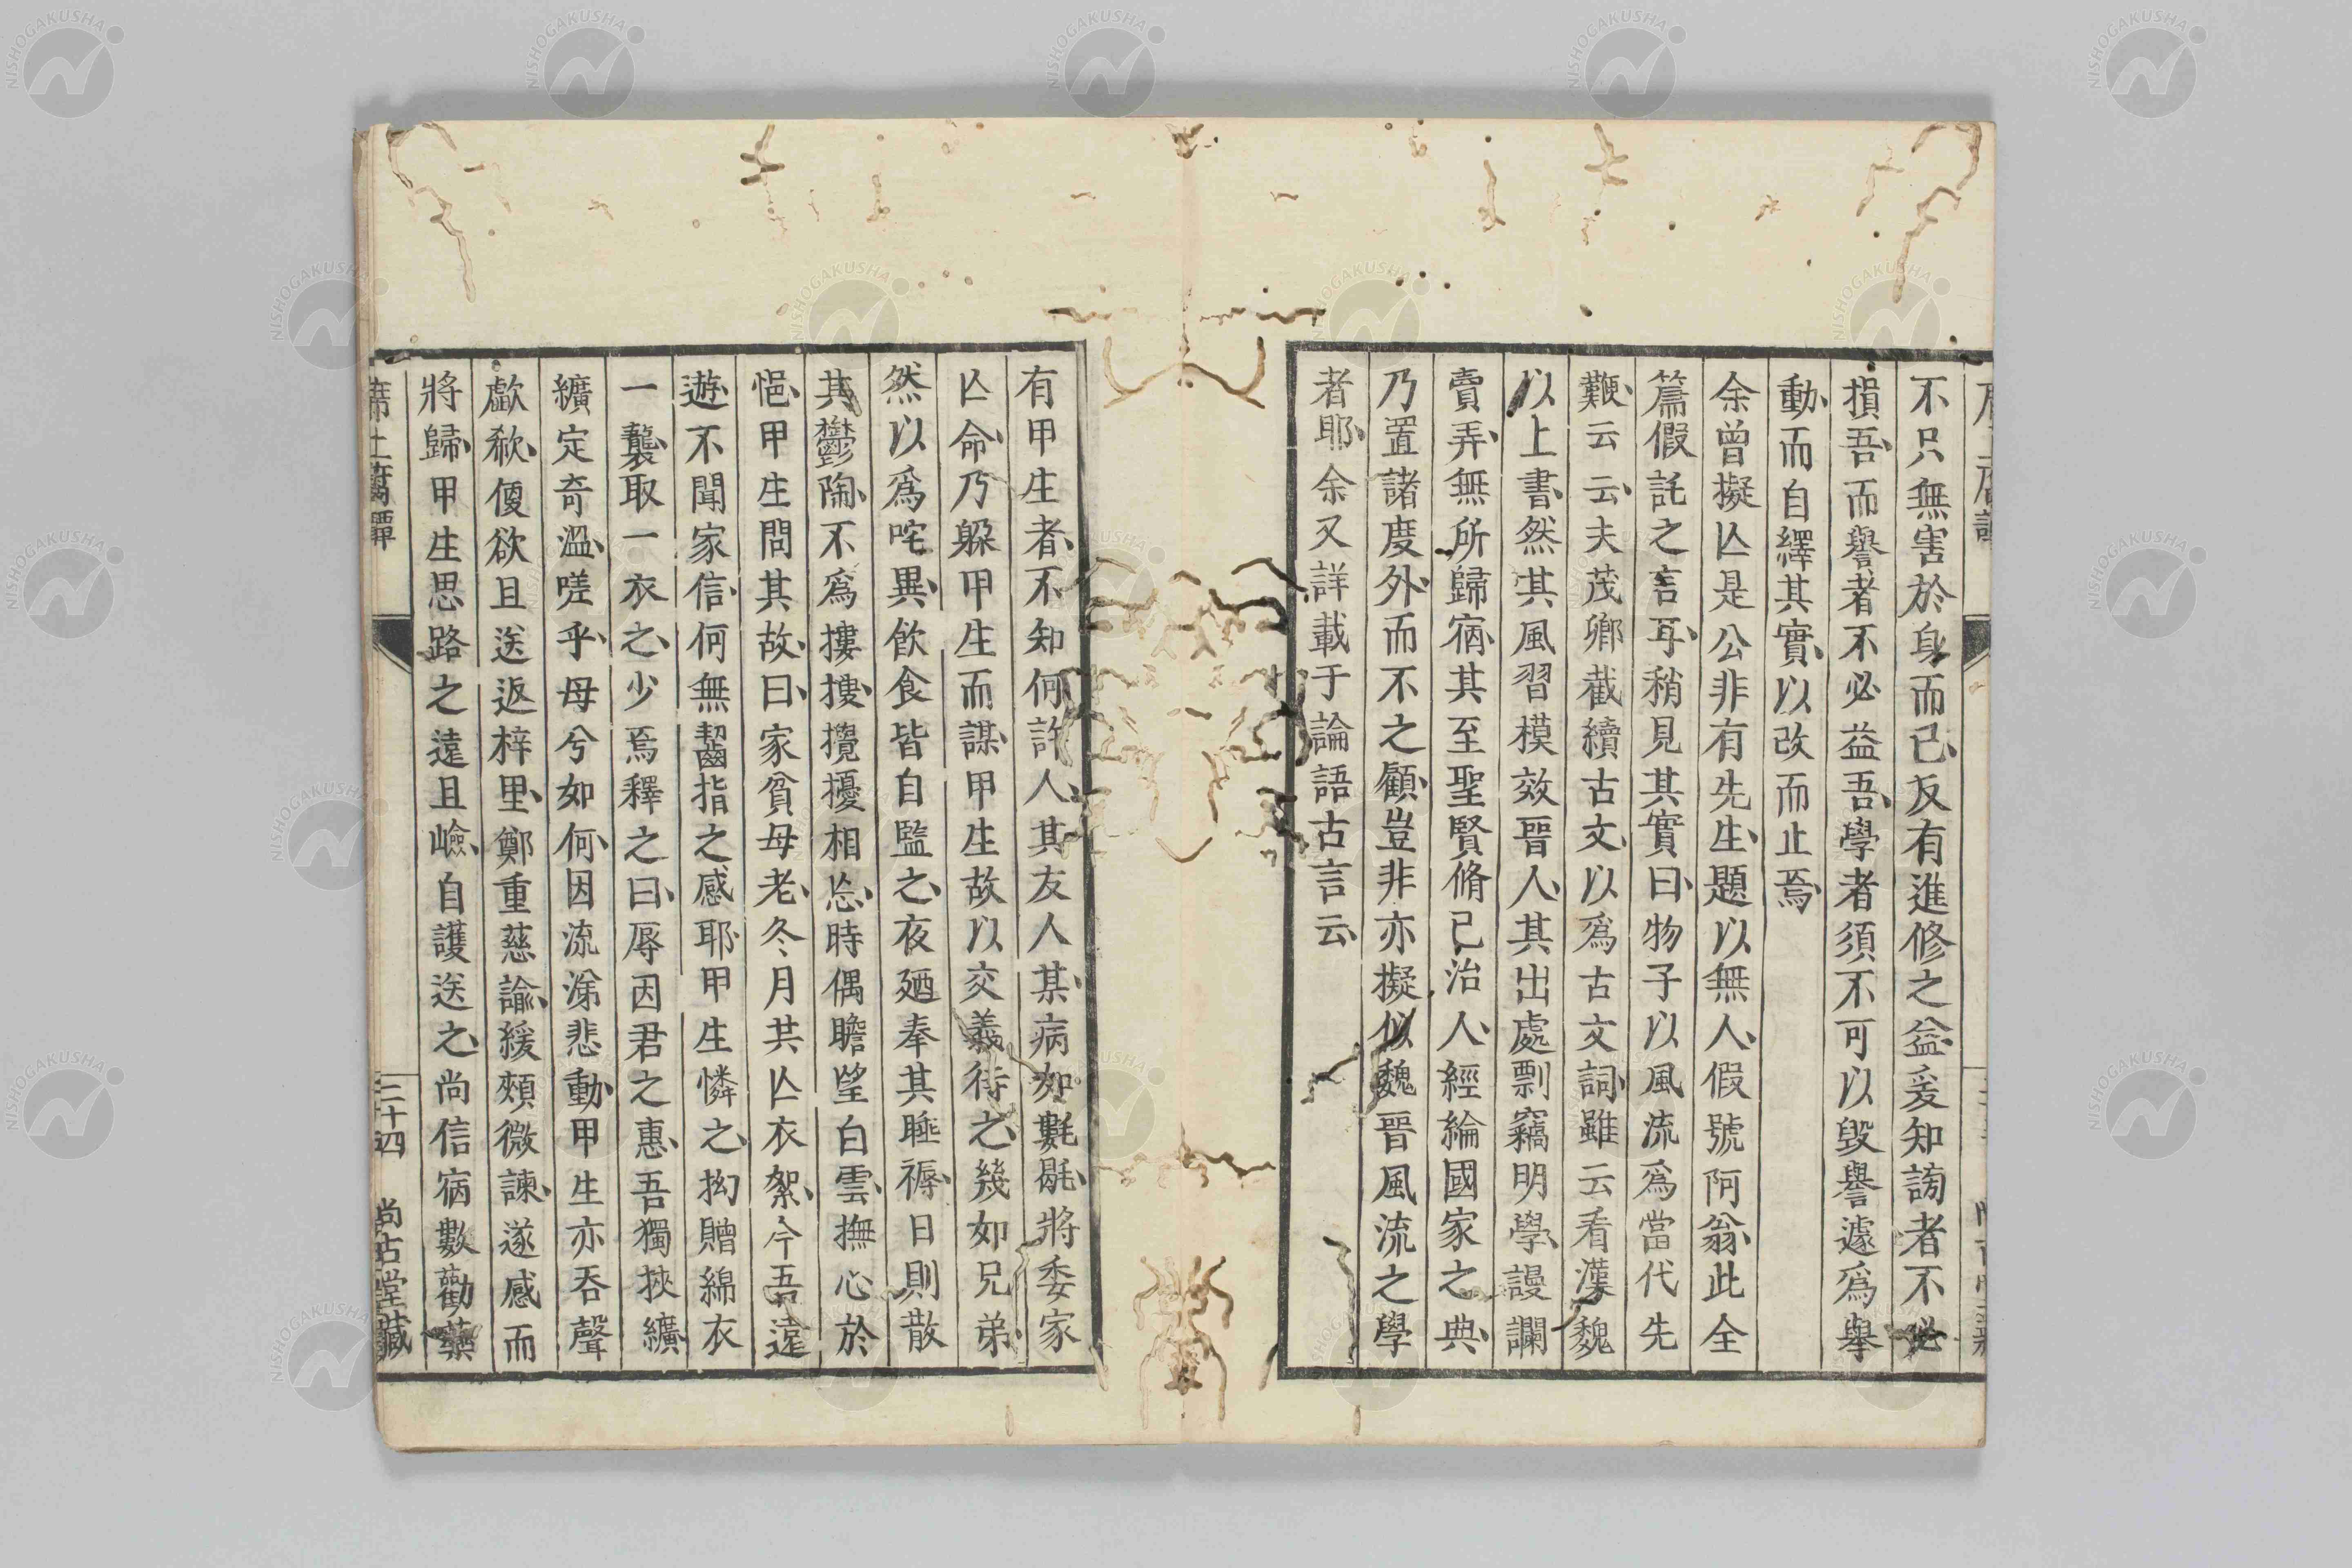 不只無害於身而已、反有進修之益、爰知謗者不必
損吾、而譽者不必益吾、學者須不可以毀譽遽爲擧
動、而自繹其實、以改而止焉、
余曾擬亾是公非有先生、題以無人、假號阿翁、此全
篇假託之言耳、稍見其實曰、物子以風流爲當代先
鞭、云云、夫茂卿截續古文、以爲古文詞、雖云看漢魏
以上書、然其風習模效晉人、其出處剽竊明學、謾讕
賣弄、無所歸宿、其至聖賢脩己治人、經綸國家之典、
乃置諸度外、而不之顧、豈非亦擬似魏晉風流之學
者耶、余又詳載于論語古言云、
有甲生者、不知何許人、其友人某、病如數㲯、將委家
亾命、乃躲甲生而謀、甲生故以交義待之、幾如兄弟、
然以爲咤異、飲食皆自監之、夜廼奉其睡褥、日則散
其鬱陶、不爲摟摟攪擾相怂、時偶瞻望白雲、撫心於
悒、甲生問其故、曰、家貧母老、冬月共亾衣絮、今吾遠
遊、不聞家信、何無齧指之感耶、甲生憐之、拗贈綿衣
一襲、取一衣之、少焉釋之曰、辱因君之惠、吾獨挾纊、
纊定奇溫、嗟乎、母兮如何、因流涕悲動、甲生亦吞聲
歔欷、傻欲且送返梓里、鄭重慈諭、緩頰微諫、遂感而
將歸、甲生思路之遠且嶮、自護送之、尚信病數勸藥
三十四
尚古堂藏